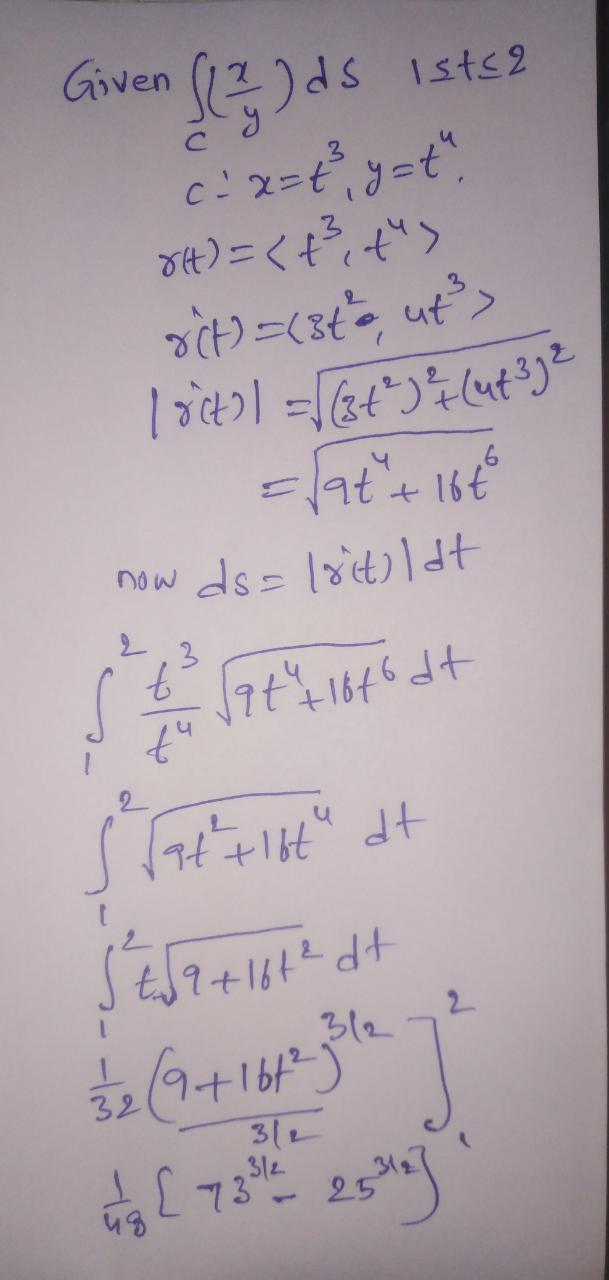 Given ∫_C (x/y) ds 1≤t≤2
C: x=t³, y=t⁴.
r(t) = <t³, t⁴>
r'(t) = <3t², 4t³>
|r'(t)| = √((3t²)²+(4t³)²)
= √(9t⁴+16t⁶)
now ds = |r'(t)|dt
∫₁² t³/t⁴ √(9t⁴+16t⁶) dt
∫₁² √(9t²+16t⁴) dt
∫₁² t√(9+16t²) dt
1/32 (9+16t²)^(3/2) / (3/2) ]₁²
1/48 [73^(3/2) - 25^(3/2)]